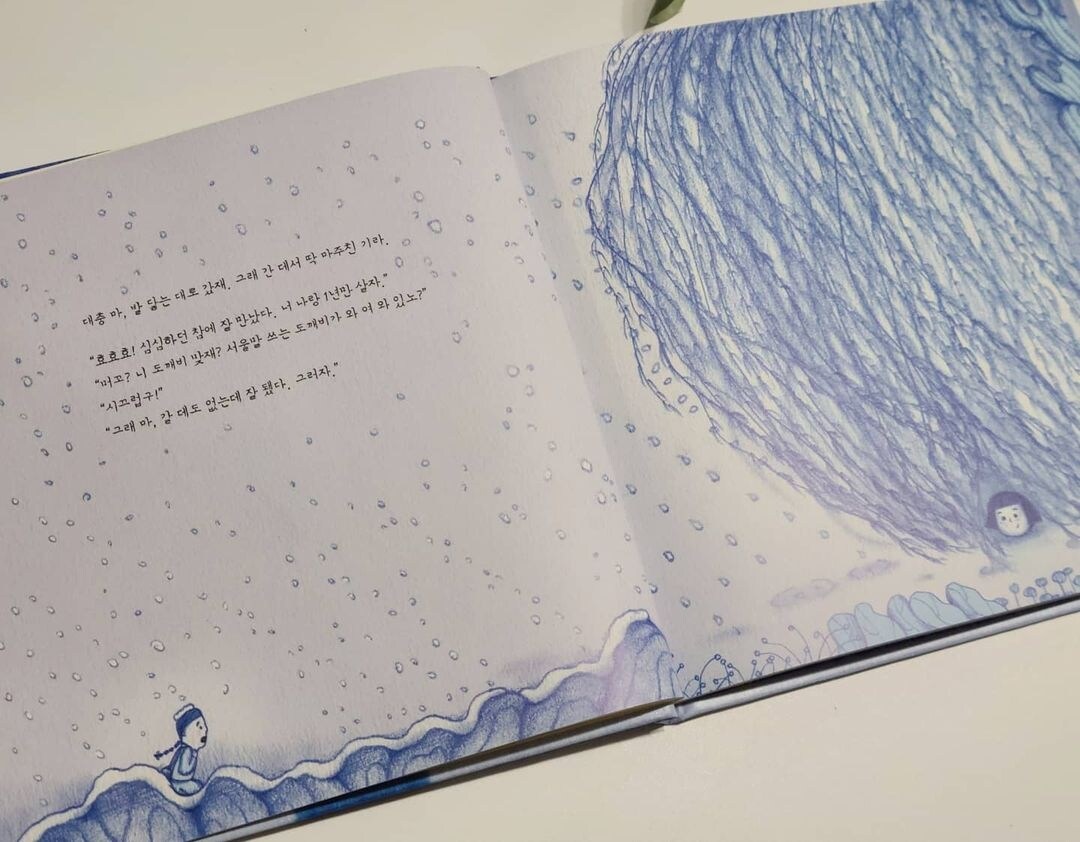 대충 마, 발 닿는 대로 갔재. 그래 간 데서 딱 마주친 기라.
“효효효! 심심하던 참에 잘 만났다. 너 나랑 1년만 살자.”
“머꼬? 니 도깨비 맞재? 서울말 쓰는 도깨비가 와 여 와 있노?”
“시끄럽구!”
“그래 마, 갈 데도 없는데 잘 됐다. 그러자.”